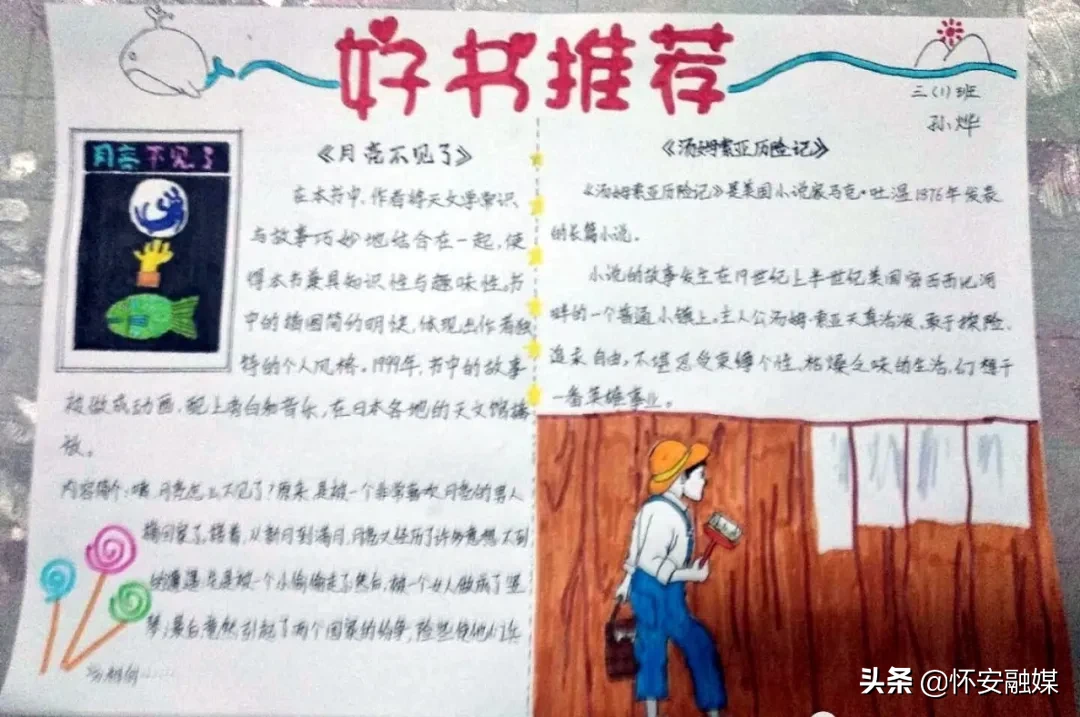 好书推荐
三(1)班
孙烨
月亮不见了
《月亮不见了》
在本书中,作者将天文学常识
与故事巧妙地结合在一起,使
得本书兼具知识性与趣味性。书
中的插图简约明快,体现出作者独
特的个人风格。1999年,书中的故事
被做成动画,配上旁白和音乐,在日本各地的天文馆播
放。
内容简介:咦,月亮怎么不见了?原来,是被一个非常喜欢月亮的男人
搞回家了。接着,从新月到满月,月亮又经历了许多意想不到
的遭遇:先是被一个小偷偷走了,然后,被一个女人做成了竖
琴;最后竟然引起了两个国家的纷争,险些使他们兵
《汤姆索亚历险记》
《汤姆索亚历险记》是美国小说家马克·吐温1876年发表
的长篇小说。
小说的故事发生在19世纪上半世纪美国密西西比河
畔的一个普通小镇上。主人公汤姆·索亚天真活泼、敢于探险、
追求自由,不堪忍受束缚个性、枯燥乏味的生活,幻想干
一番英雄事业。
头条 @怀安融媒